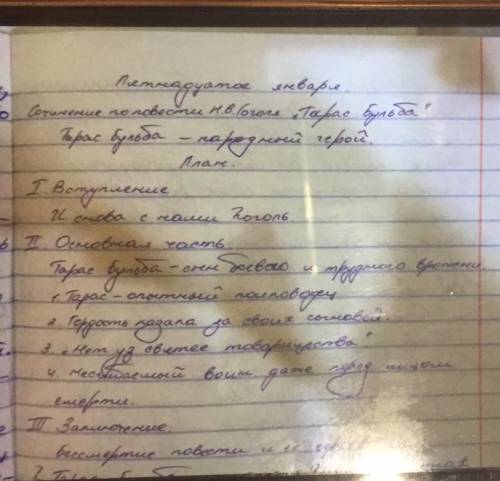 Пятнадцатое января.
Сочинение по повести Н.В.Гоголя „Тарас Бульба"
Тарас Бульба – народный герой.
План.
I Вступление
И снова с нами Гоголь
II. Основная часть
Тарас Бульба – сын боевого и трудного времени
1. Тарас – опытный полководец
2. Гордость казака за своих сыновей.
3. „Нет уз святее товарищества"
4. Несгибаемый воин даже перед лицом
смерти.
III Заключение.
Бессмертие повести и её